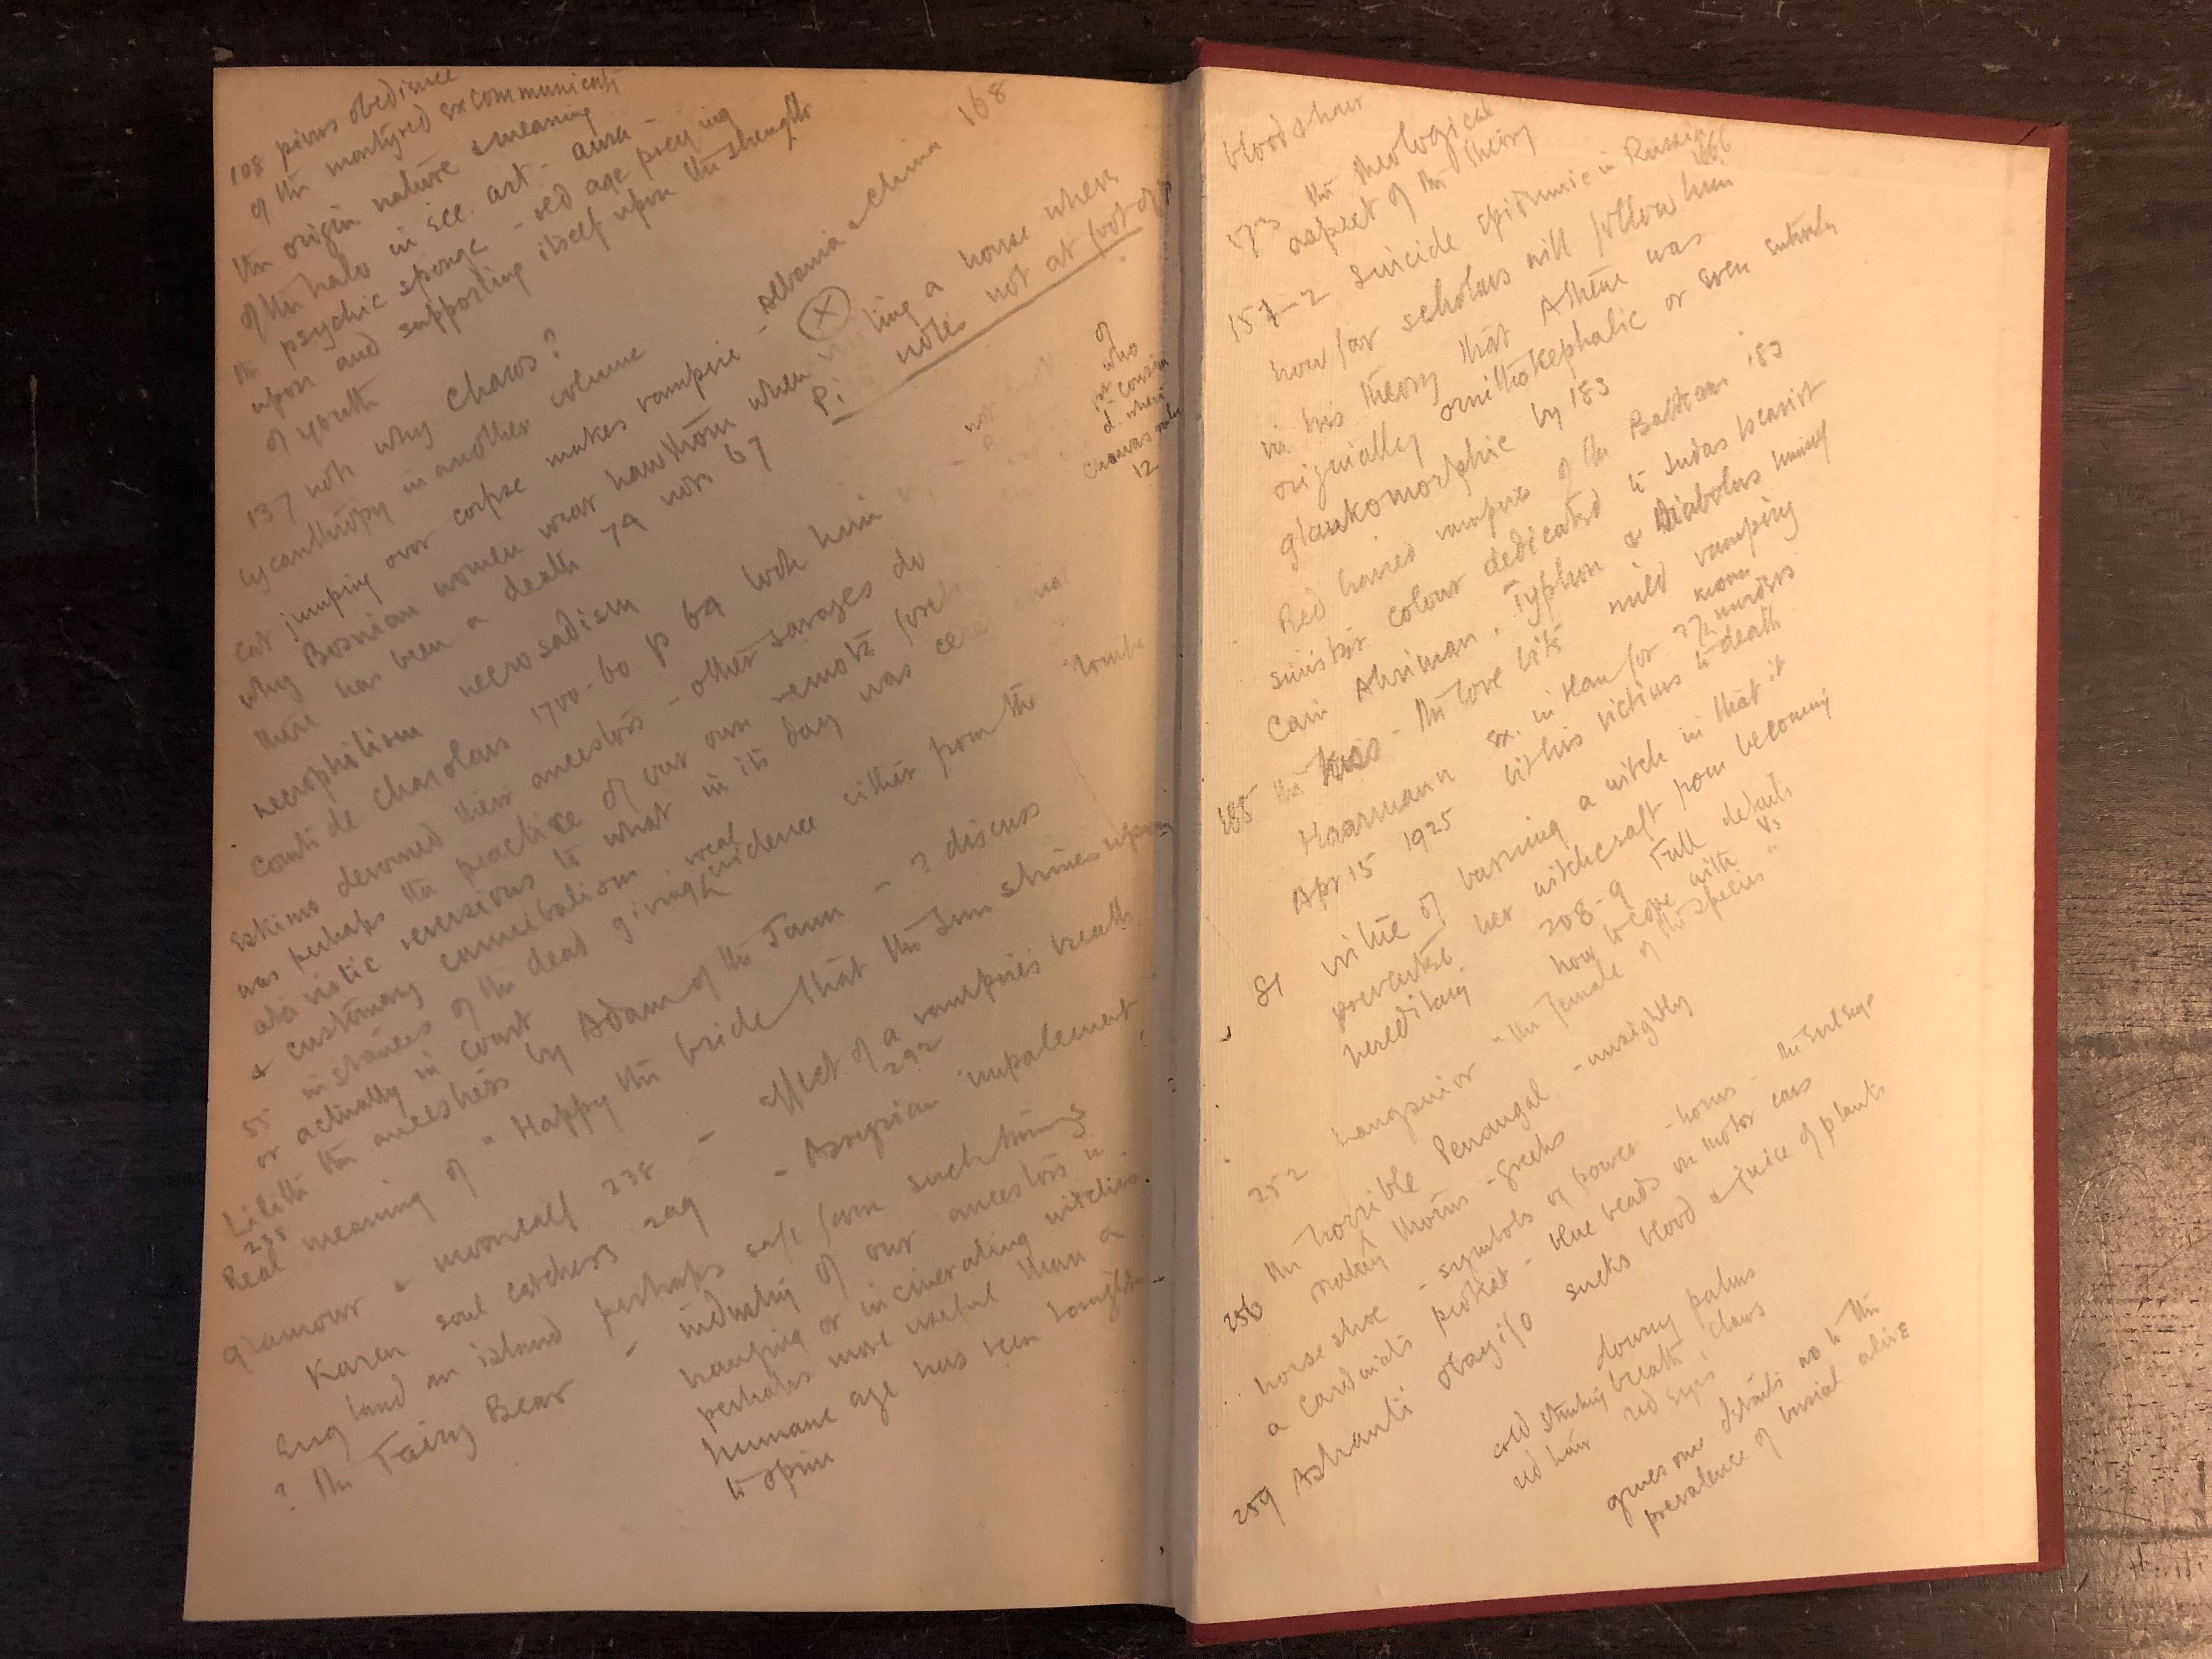 108 pious obedience
of the martyred excommunicate
the origin nature & meaning
of the halo in ecc. art - aura -
the psychic sponge - red age preying
upon and supporting itself upon the strength
of youth
137 note why chaos?
lycanthropy in another volume
cat jumping over corpse makes vampire - Albania & China 168
why Bosnian women wear hawthorn when visiting a house where
there has been a death 74 note 67
notes not at foot of p
necrophilism necrosadism
of
who
cousin
d. when
was only
12
Comte de Charolais 1700-60 p 64 look him
Eskimo devoured their ancestors - other savages do
was perhaps the practice of our own remote
atavistic reversions to what in its day was
& customary cannibalism
55 instances of the dead giving vocal evidence either from the tomb
or actually in court
Lilith the ancestress by Adam of the Jann - ? discuss
235
Real meaning of "Happy the bride that the sun shines upon"
glamour & mooncalf 238 - effect of a vampires breath
Karen soul catchers 249 292
England an island perhaps safe from such things - Assyrian impalement
? the Fairy Bear - industry of our ancestors in
hanging or incinerating witches
perhaps more useful than a
humane age has been taught
to opine
blood & hair
173 the theological
aspect of the theory
157-2 Suicide epidemic in Russia 1666
how far scholars will follow him
in his theory that Athene was
originally ornithokephalic or even entirely
glaukomorphic by 183
Red haired vampires of the Balkans 183
sinister colour dedicated to Judas Iscariot
Cain Ahriman, Typhon & Diabolus himself
185 the kiss - the love bite mild vamping
Haarmann ex. in Han for 27 known murders
Apr 15 1925 bit his victims to death
81 virtue of burning a witch in that it
prevented her witchcraft from becoming
hereditary 208-9 Full details
how to cope with vs
252 Langsuior "the female of the species"
256 the horrible Penangal - unsightly
thorns - Greeks
horse shoe - symbols of power - horns - the Evil Eye
a cardinals protect - blue beads on motor cars
259 Ashanti obayifo sucks blood & juice of plants
downy palms
cold stinking breath, claws
red hair red eyes
gruesome details as to the
prevalence of burial alive